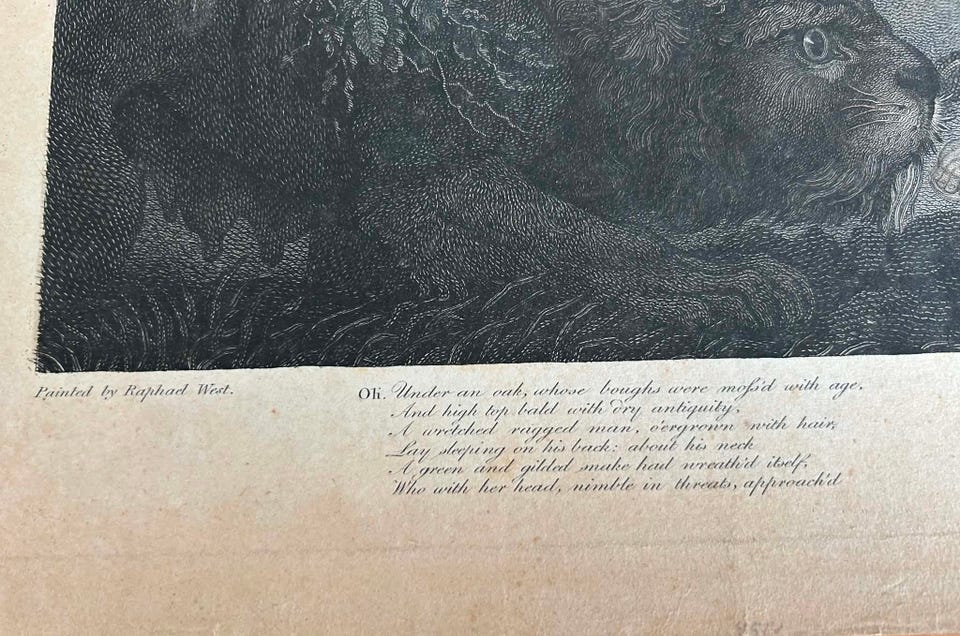 Painted by Raphael West.
Oli. Under an oak, whose boughs were moſs'd with age,
And high top bald with dry antiquity,
A wretched ragged man, o'ergrown with hair,
Lay sleeping on his back: about his neck
A green and gilded snake had wreath'd itself,
Who with her head, nimble in threats, approach'd